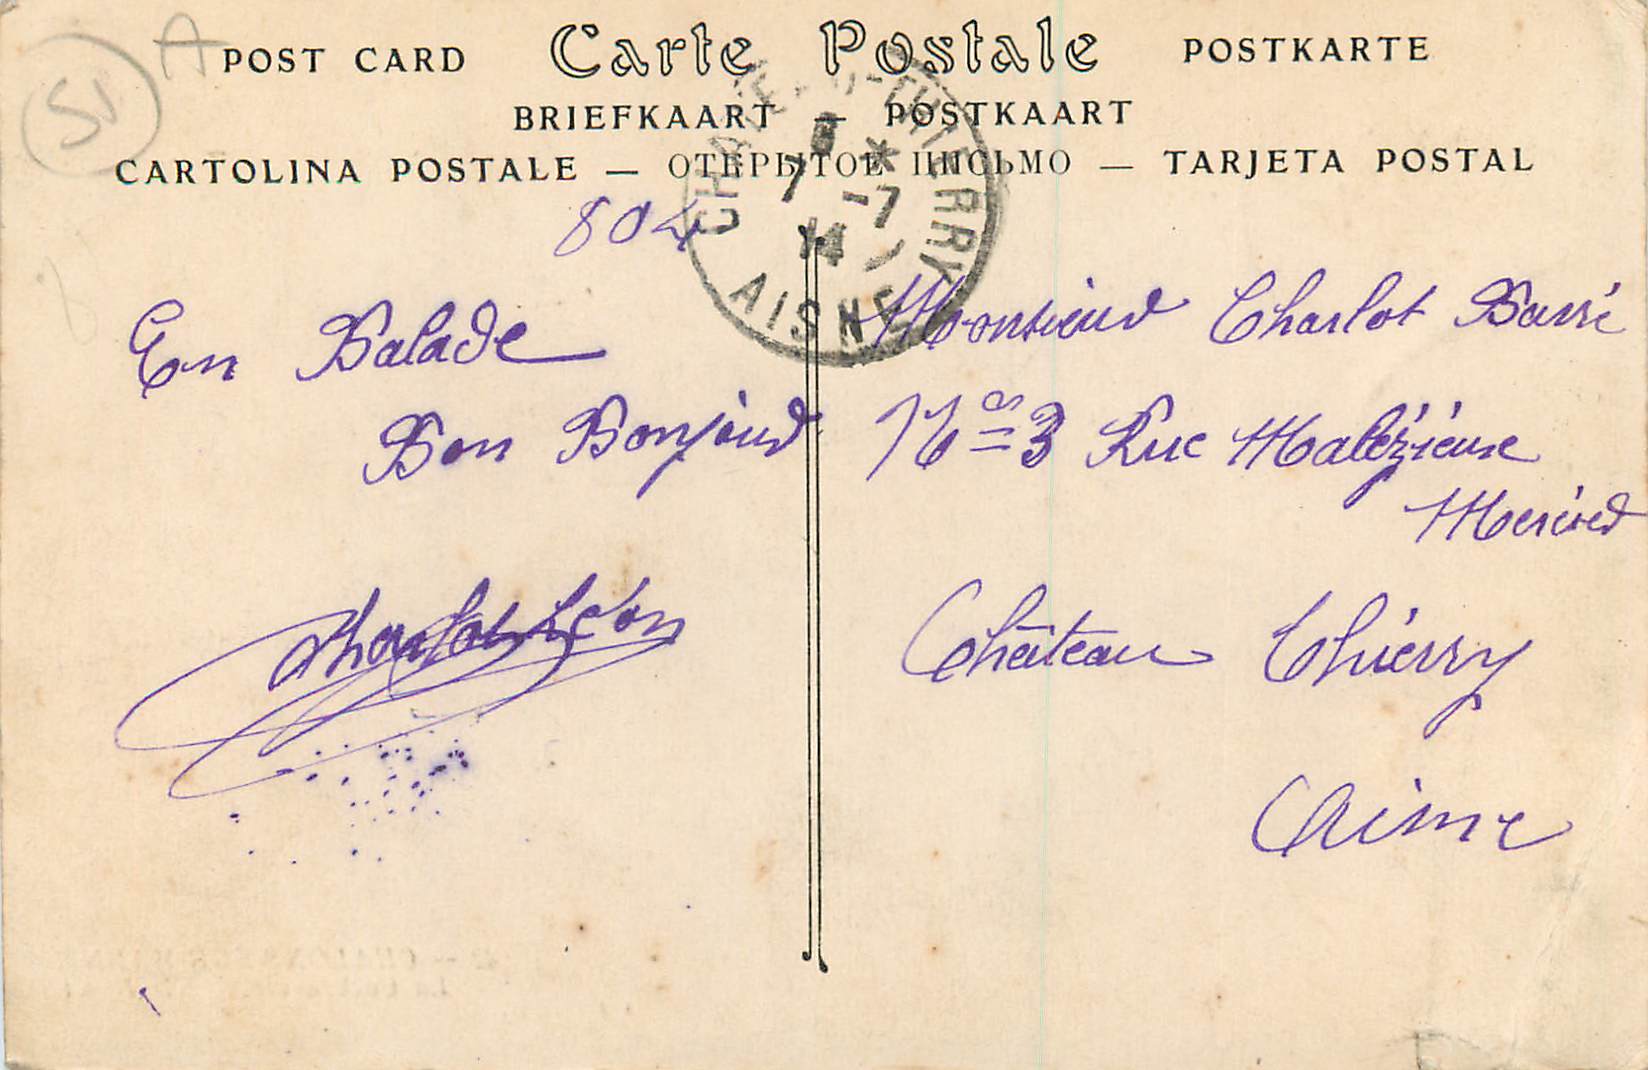 51
A
POST CARD Carte Postale POSTKARTE
BRIEFKAART — POSTKAART
CARTOLINA POSTALE — ОТКРЫТОЕ ПИСЬМО — TARJETA POSTAL
CHATEAU-THIERRY
7 * -7
14
AISNE
804
En Balade
Bon Bonjour
Charlot Léon
Monsieur Charlot Barré
No = 3 Rue Malézieux
Château Thierry
Aisne